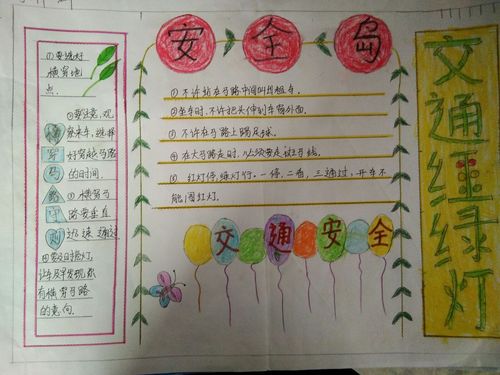 安全岛
①不许站在马路中间叫出租车。
②坐车时,不许把头伸到车窗外面。
③不许在马路上踢足球。
④在大马路走时,必须要走斑马线。
⑤红灯停,绿灯行。一停,二看,三通过,开车不
能闯红灯。
交通安全
交通红绿灯
横穿马路守则
①要选好
横穿地
点。
②要注意,观
察来车,选择
好穿越马路
的时间。
③横穿马
路要垂直
迅速通过
让车及早发现,你
有横穿马路
的意向。